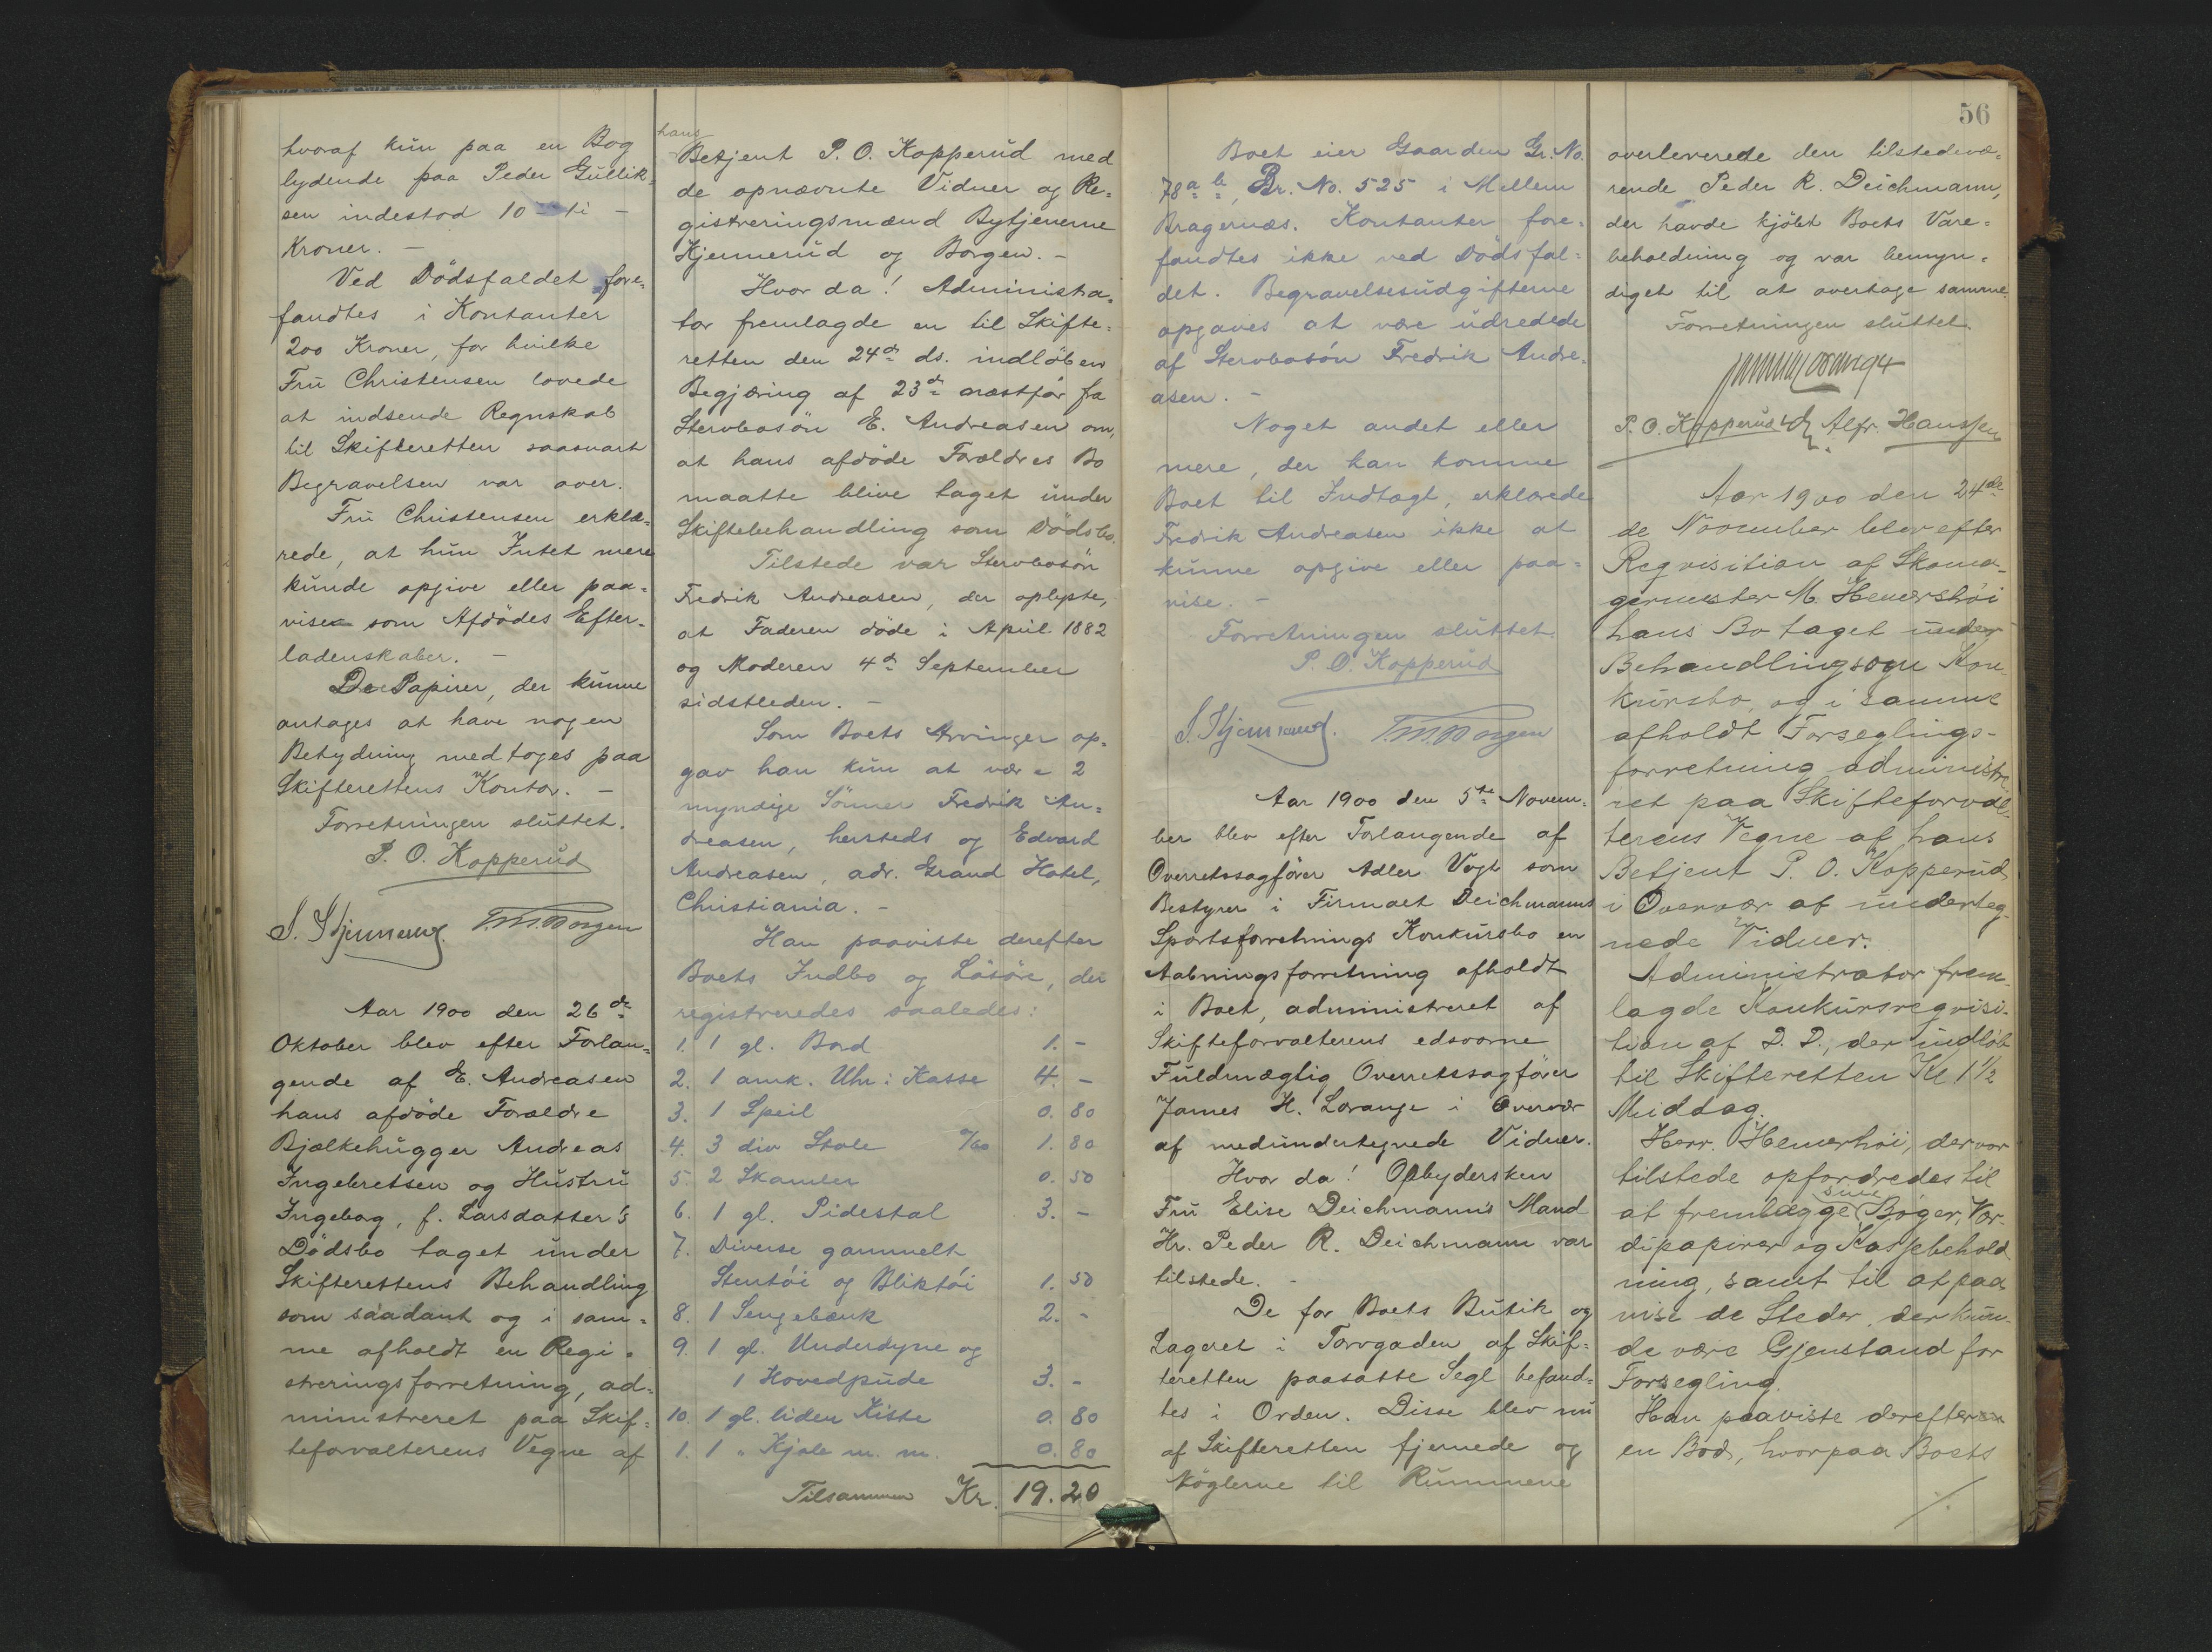 hvoraf kun paa en Bog
lydende paa Peder Gullik=
sen indestod 10 - ti -
Kroner. -
Ved Dödsfaldet fore=
fandtes i Kontanter
200 Kroner, for hvilke
Fru Christensen lovede
at indsende Regnskab
til Skifteretten saasnart
Begravelsen var over.
Fru Christensen erklæ=
rede, at hun Intet mere
kunde opgive eller paa=
vise som Afdödes Efter=
ladenskaber. -
De Papirer, der kunne
antages at have nogen
Betydning medtoges paa
Skifterettens Kontor. -
Forretningen sluttet.
P. O. Kopperud
S. Hjennerud. T. M. Borgen
Aar 1900 den 26de
Oktober blev efter Forlan=
gende af E. Andreasen
hans afdöde Forældre
Bjælkehugger Andreas
Ingebretsen og Hustru
Ingeborg, f. Larsdatter's
Dödsbo taget under
Skifterettens Behandling
som saadant og i sam=
me afholdt en Regi=
streringsforretning, ad=
ministreret paa Skif=
teforvalterens Vegne af
hans
Betjent P. O. Kopperud med
de opnævnte Vidner og Re=
gistreringsmænd Bytjenerne
Hjennerud og Borgen. -
Hvor da! Administra=
tor fremlagde en til Skifte=
retten den 24de ds. indlöben
Begjæring af 23de næstfór fra
Stervbosön E. Andreasen om,
at hans afdöde Forældres Bo
maatte blive taget under
Skiftebehandling som Dödsbo.
Tilstede var Stervbosön
Fredrik Andreasen, der oplyste,
at Faderen döde i April 1882
og Moderen 4de September
sidstleden. -
Som Boets Arvinger op=
gav han kun at være 2
myndige Sönner Fredrik An=
dreasen, hersteds og Edvard
Andreasen, adr. Grand Hotel,
Christiania. -
Han paaviste derefter
Boets Indbo og Lösöre, der
registreredes saaledes:
1. 1 gl. Bord 1. -
2. 1 amk. Uhr i Kasse 4. -
3. 1 Speil 0. 80
4. 3 div Stole %60 1. 80
5. 2 Skamler 0. 50
6. 1 gl. Pidestal 3. -
7. Diverse gammelt
Stentói og Bliktói 1. 50
8. 1 Sengebænk 2. -
9. 1 gl. Underdyne og
1 Hovedpude 3. -
10. 1 gl. liden Kiste 0. 80
1. 1 " Kjole m. m. 0. 80
Tilsammen Kr. 19.20
56
Boet eier Gaarden Gr. No.
78 a b, Br. No. 525 i Mellem
Bragernæs. Kontanter fore=
fandtes ikke ved Dödsfal=
det. Begravelsesudgifterne
opgaves at være udredede
af Stervbosón Fredrik Andre=
asen. -
Noget andet eller
mere, der kan komme
Boet til Indtægt, erklærede
Fredrik Andreasen ikke at
kunne opgive eller paa=
vise. -
Forretningen sluttet.
P. O. Kopperud
S. Hjennerud. T. M. Borgen
Aar 1900 den 5te Novem=
ber blev efter Forlangende af
Overretssagfórer Adler Vogt som
Bestyrer i Firmaet Deichmanns
Sportsforretnings Konkursbo en
Aabningsforretning afholdt
i Boet, administreret af
Skifteforvalterens edsvorne
Fuldmægtig Overretssagfórer
James H. Lorange i Overvær
af medundertegnede Vidner.
Hvor da! Opbydersken
Fru Elise Deichmanns Mand
Hr. Peder R. Deichmann var
tilstede. -
De for Boets Butik og
Lageret i Torvgaden af Skif=
teretten paasatte Segl befand=
tes i Orden. Disse blev nu
af Skifteretten fjernede og
Nöglerne til Rummene
overleverede den tilstedevæ=
rende Peder R. Deichmann,
der havde kjöbt Boets Vare=
beholdning og var bemyn=
diget til at overtage samme.
Forretningen sluttet.
P. O. Kopperud Alfr. Hanssen
Aar 1900 den 24de
de November blev efter
Reqvisition af Skoma=
germester M. Hemershói
hans Bo taget under
Behandling som Kon=
kursbo, og i samme
afholdt Forseglings=
forretning administre=
ret paa Skifteforval=
terens Vegne af hans
Betjent P. O. Kopperud
i Overvær af underteg=
nede Vidner.
Administrator frem=
lagde Konkursreqvisi=
tion af D. D., der indlób
til Skifteretten Kl 1 1/2
Middag.
Herr. Hemershói, der var
tilstede opfordredes til
at fremlægge sine Bóger, Vær=
dipapirer og Kassebehold
ning, samt til at paa
vise de Steder, der kun=
de være Gjenstand for
Forsegling.
Han paaviste derefter
en Bod, hvorpaa Boets